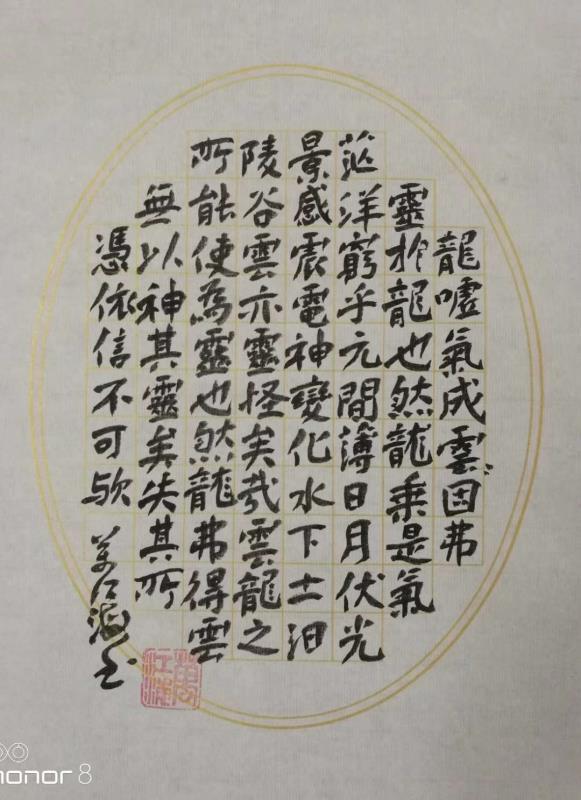 龍噓氣成雲=因弗
靈於龍也然龍乗是氣
茫洋窮乎元間薄日月伏光
景感震電神變化水下土汨
陵谷雲亦靈怪矣㢤雲龍之
所能使為靈也然龍弗得雲
無以神其靈矣失其所
憑依信不可欤
萬江海书
萬江浦
honor 8